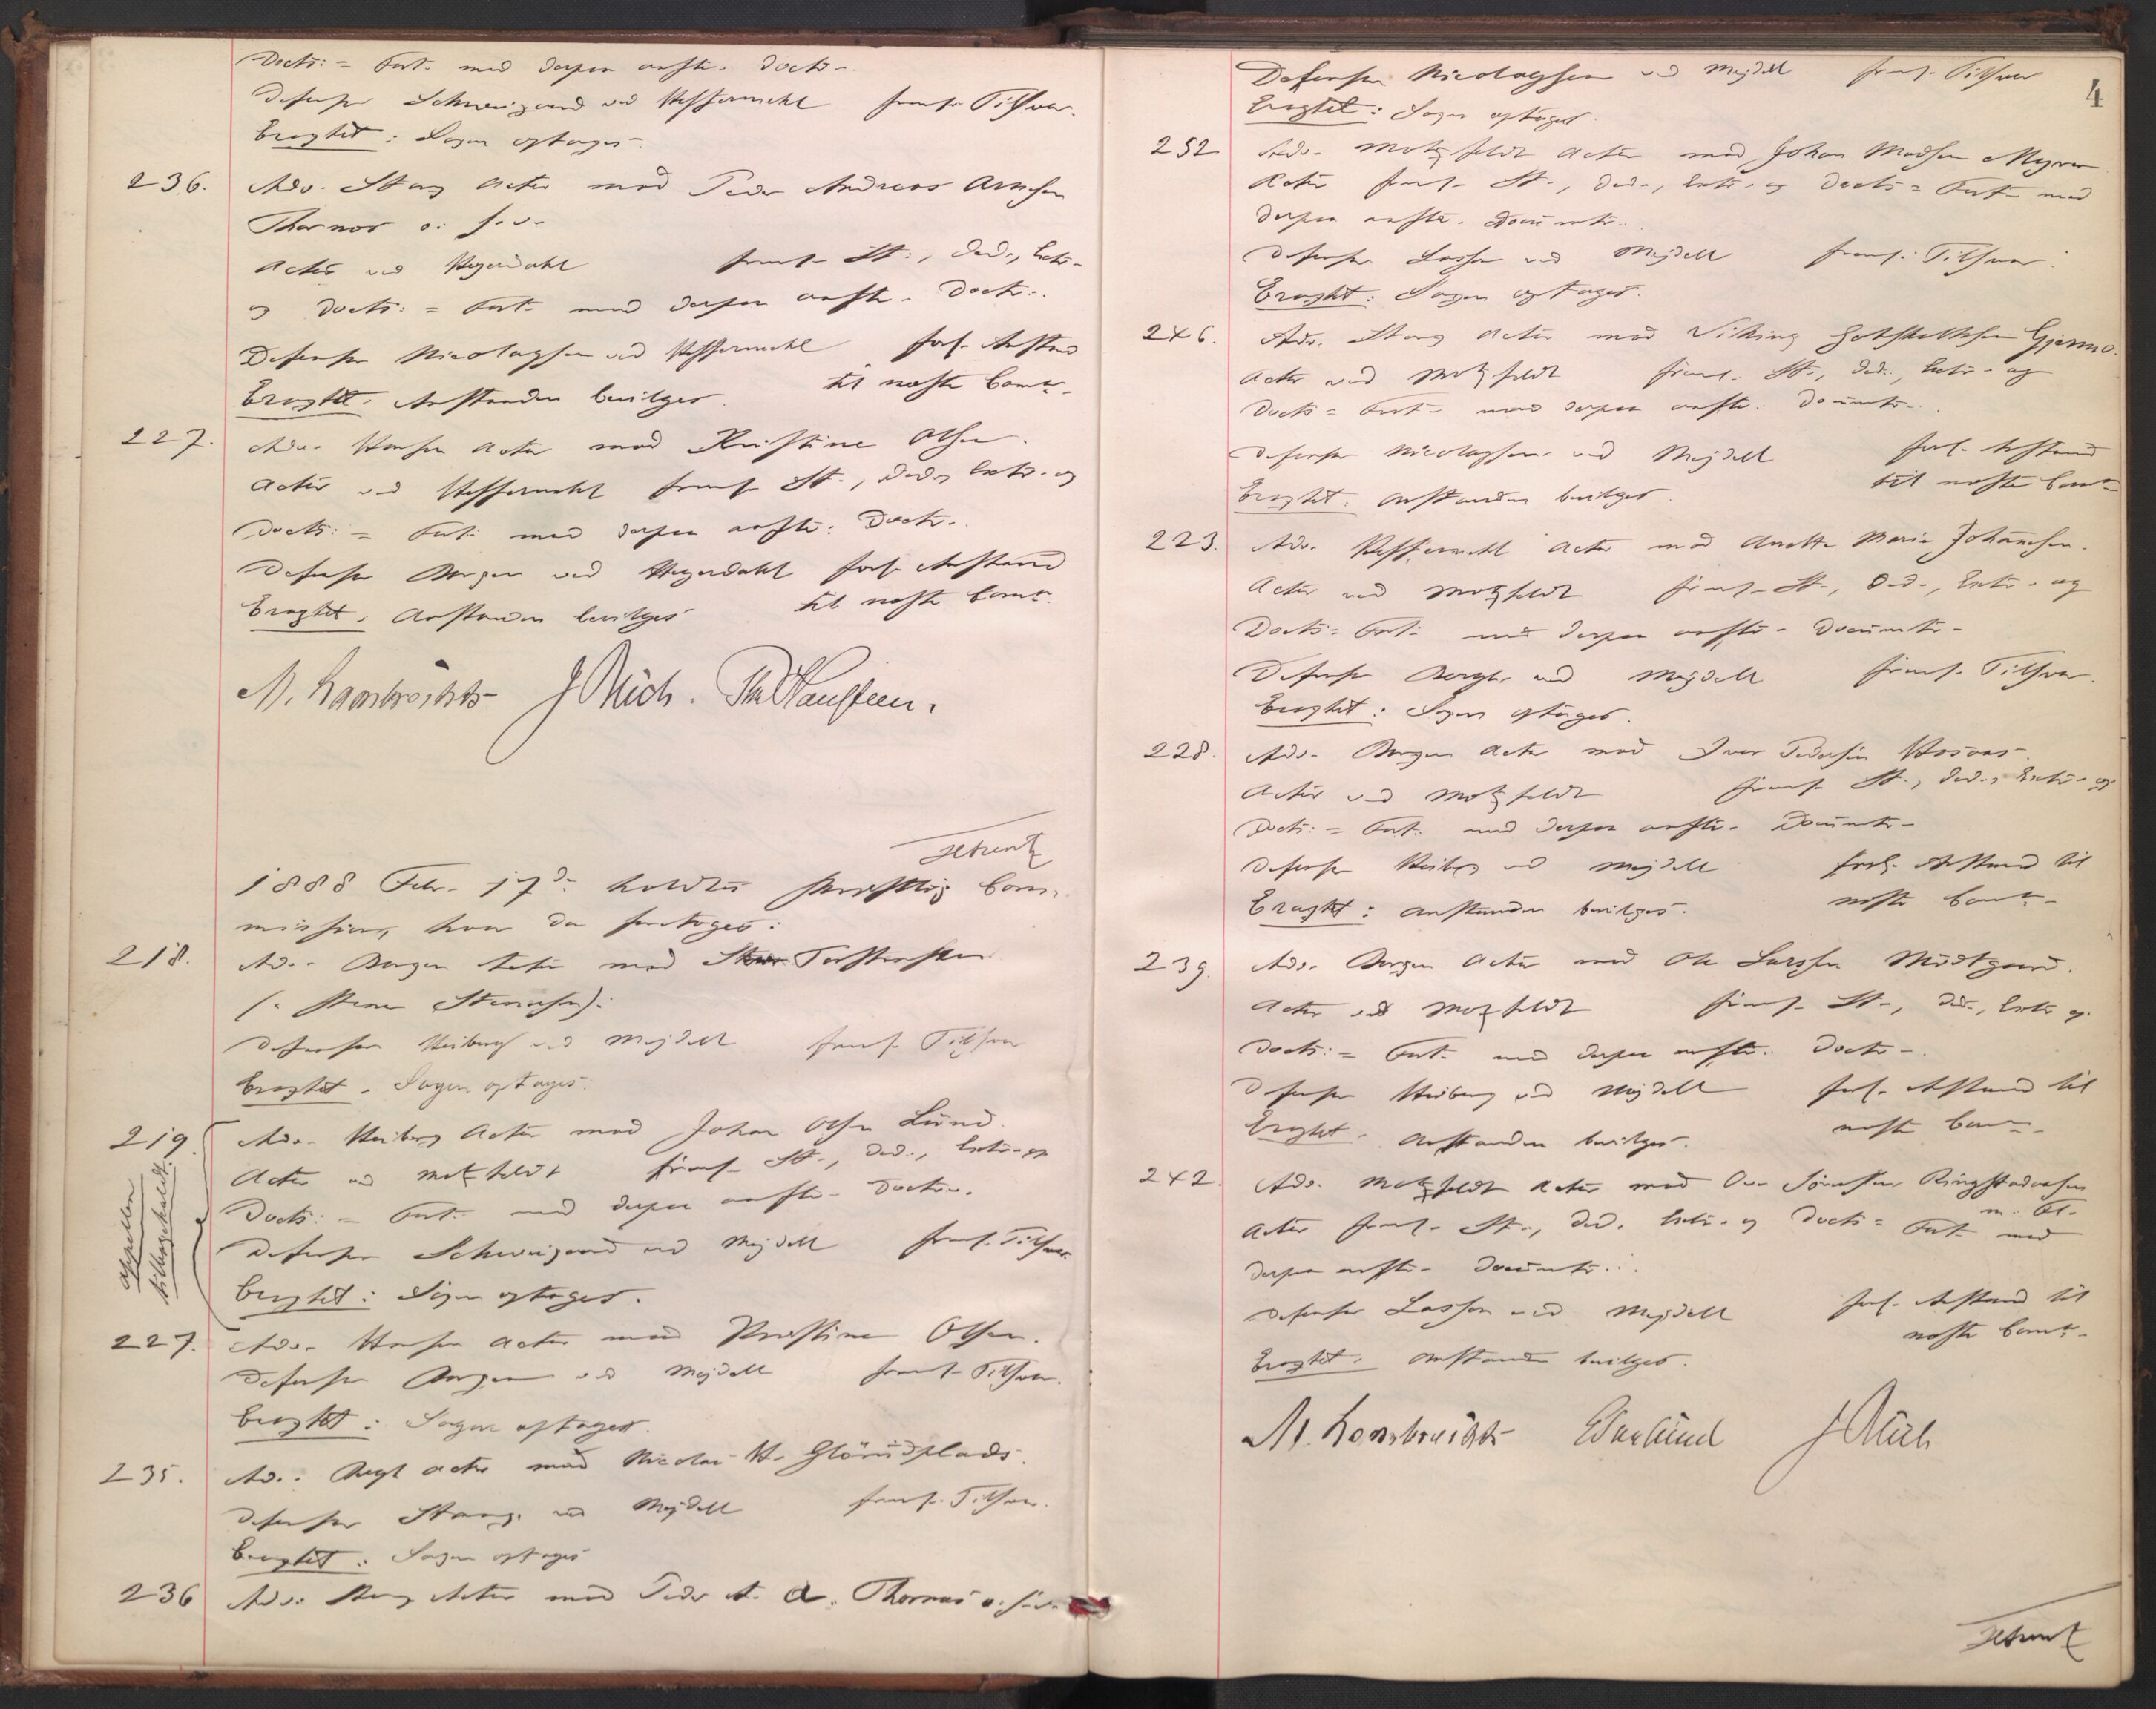 Docts: = Fort. med derpaa anfte. Docts-
Defensor Schweigaard ved Heffermehl freml. Tilsvar.
Eragtet: Sagen optages.
236. Adv. Stang Actor mod Peder Andreas Arnesen
Thornæs o: f. v.
Actor ved Heyerdahl freml. St:, Ded., Extr.
og Docts: = Fort. med derpaa anfte. Docts.
Defensor Nicolaysen ved Heffermehl forl. Anstand
til næste Comn.
Eragtet: Anstanden bevilges.
227. Adv. Hansen Actor mod Kristine Olsen.
Actor ved Heffermehl freml. St., Ded., Extr. og
Docts: = Fort. med derpaa anfte: Docts.
Defensor Bergen ved Heyerdahl forl. Anstand
til næste Comn.
Eragtet: Anstanden bevilges
M. Lambrechts J Rüch.
1888 Febr. 17de holdtes skriftlig Com-
mission, hvor da foretoges:
218. Adv. Bergen Actor mod Torstensen
(: Stener Stenersen):
Defensor Heiberg ved Mejdell freml. Tilsvar
Eragtet. Sagen optages.
219. Adv. Heiberg Actor mod Johan Olsen Lund.
Actor ved Motzfeldt freml. St., Ded., Extr. og
appellen
tilbagekaldt.
Docts: = Fort. med derpaa anfte. Docts.
Defensor Schweigaard ved Mejdell freml. Tilsvar.
Eragtet: Sagen optages.
227. Adv. Hansen Actor mod Kristine Olsen.
Defensor Bergen ved Mejdell freml. Tilsvar.
Eragtet: Sagen optages.
235. Adv. Actor mod Nicolai H. Glörudplads.
Defensor Stang ved Mejdell freml. Tilsvar.
Eragtet: Sagen optages
236 Adv. Stang Actor mod Peder A. A. Thornæs o: f. v.
4
Defensor Nicolaysen ved Mejdell freml. Tilsvar
Eragtet: Sagen optages.
252 Adv. Motzfeldt Actor mod Johan Madsen Myrer
Actor freml. St., Ded., Extr. og Docts = Fort. med
derpaa anfte. Documtr.
Defensor Lasson ved Mejdell freml. Tilsvar.
Eragtet: Sagen optages.
246. Adv. Stang Actor mod Viking Gotskalksen Gjermo.
Actor ved Motzfeldt freml. St., Ded., Extr. og
Docts = Fort. med derpaa anfte. Documtr.
Defensor Nicolaysen ved Mejdell forl. Anstand
til næste Comn
Eragtet. Anstanden bevilges.
223. Adv. Heffermehl Actor mod Anette Marie Johannesen.
Actor ved Motzfeldt freml. St., Ded., Extr. og
Docts = Fort. med derpaa anfte. Documtr.
Defensor ved Mejdell freml. Tilsvar.
Eragtet: Sagen optages.
228. Adv. Bergen Actor mod Iver Pedersen Hosaas.
Actor ved Motzfeldt freml. St., Ded., Extr. og
Docts: = Fort. med derpaa anfte. Documtr.
Defensor Heiberg ved Mejdell forl. Anstand til
næste Comn.
Eragtet: Anstanden bevilges.
239. Adv. Bergen Actor mod Ole Larsen Midtgaard.
Actor ved Motzfeldt freml. St., Ded., Extr. og
Docts: = Fort. med derpaa anfte. Docts.
Defensor Heiberg ved Mejdell forl. Anstand til
næste Comn.
Eragtet. Anstanden bevilges.
242. Adv. Motzfeldt Actor mod Ole Sörensen
m. fl.
Actor freml. St., Ded. Extr. og Docts = Fort. med
derpaa anfte. Documtr.
Defensor Lasson ved Mejdell forl. Anstand til
næste Comn.
Eragtet. Anstanden bevilges.
M. Lambrechts J Rüch